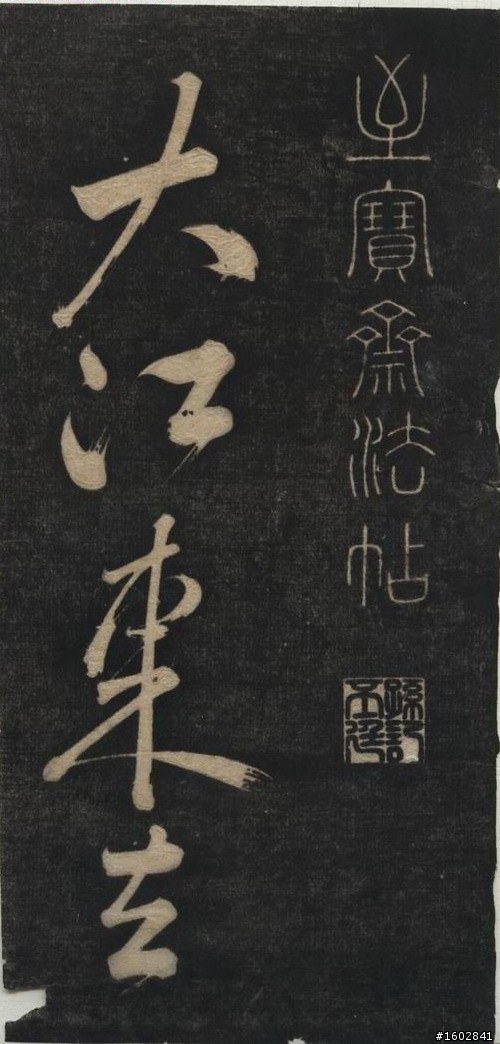 至寶齋法帖
大江東去
#1602841